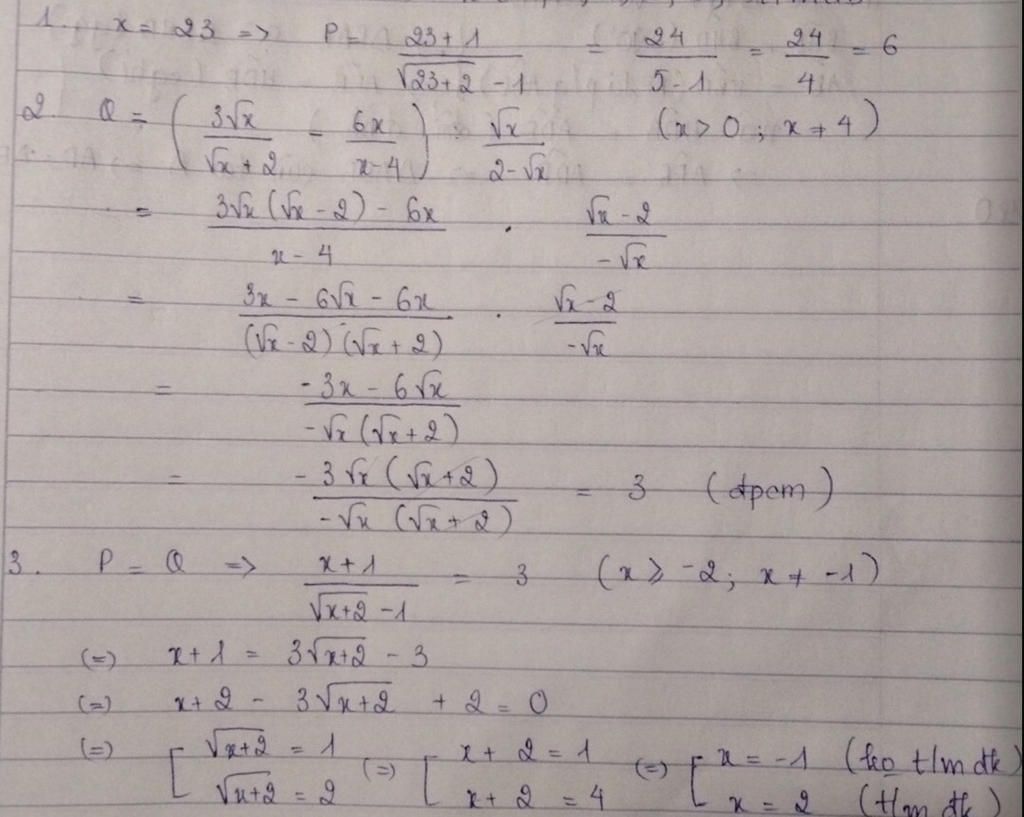 1. x = 23 => P = \frac{23+1}{\sqrt{23+2} - 1} = \frac{24}{5-1} = \frac{24}{4} = 6
2. Q = ( \frac{3\sqrt{x}}{\sqrt{x}+2} - \frac{6x}{x-4} ) : \frac{\sqrt{x}}{2-\sqrt{x}} (x > 0 ; x ≠ 4)
= \frac{3\sqrt{x}(\sqrt{x}-2) - 6x}{x-4} . \frac{\sqrt{x}-2}{-\sqrt{x}}
= \frac{3x - 6\sqrt{x} - 6x}{(\sqrt{x}-2)(\sqrt{x}+2)} . \frac{\sqrt{x}-2}{-\sqrt{x}}
= \frac{-3x - 6\sqrt{x}}{-\sqrt{x}(\sqrt{x}+2)}
= \frac{-3\sqrt{x}(\sqrt{x}+2)}{-\sqrt{x}(\sqrt{x}+2)} = 3 (đpcm)
3. P = Q => \frac{x+1}{\sqrt{x+2} - 1} = 3 (x ⩾ -2; x ≠ -1)
(=) x+1 = 3\sqrt{x+2} - 3
(=) x+2 - 3\sqrt{x+2} + 2 = 0
(=) [ \sqrt{x+2} = 1 (=) [ x + 2 = 1 (=) [ x = -1 (ko t/m đk)
\sqrt{x+2} = 2 x + 2 = 4 x = 2 (t/m đk)